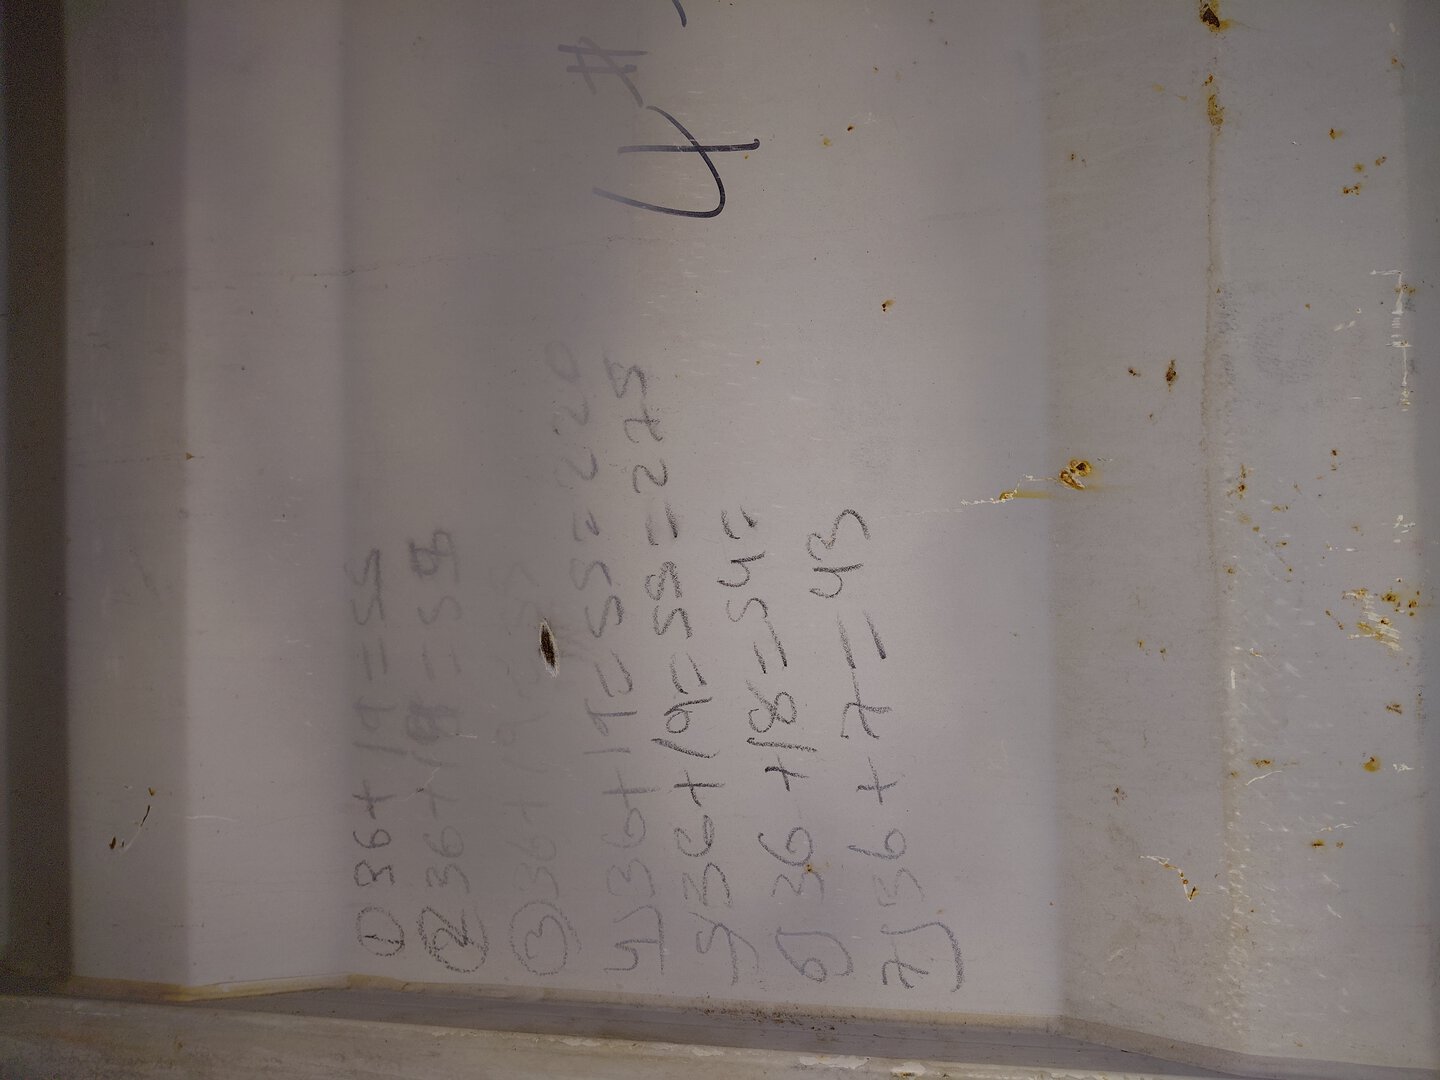 4 #
① 36+19=55
② 36+19=55
③ 36+19
4) 36+19=55=220
5) 36+19=55=275
6) 36+18=54=
7) 36+7=43